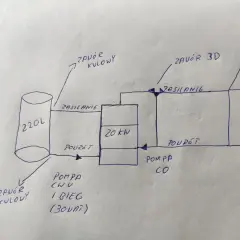 ZAWÓR
KULOWY
ZAWÓR 3D
ZASILANIE
ZASILANIE
220L
20KW
POWRÓT
POWRÓT
POMPA
CO
POMPA
CWU
1 BIEG
(30WAT)
ZAWÓR
KULOWY